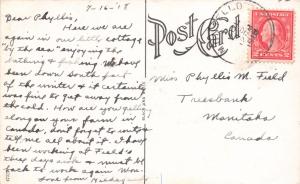 8-16-'18
Dear Phyllis,
Here we are
again in our little cottage
by the sea "enjoying the
bathing & fishing. We have
been down South part
of the winter & it certainly
was fine to get away from
the cold. How are you getting
along on your farm in
Canada, don't forget to write &
tell me all about it. I have
been working at Fields
these days and & must be
back to work again Mon.
Love from
Post Card
Miss Phyllis M. Field
Treesbank
Manitoba
Canada